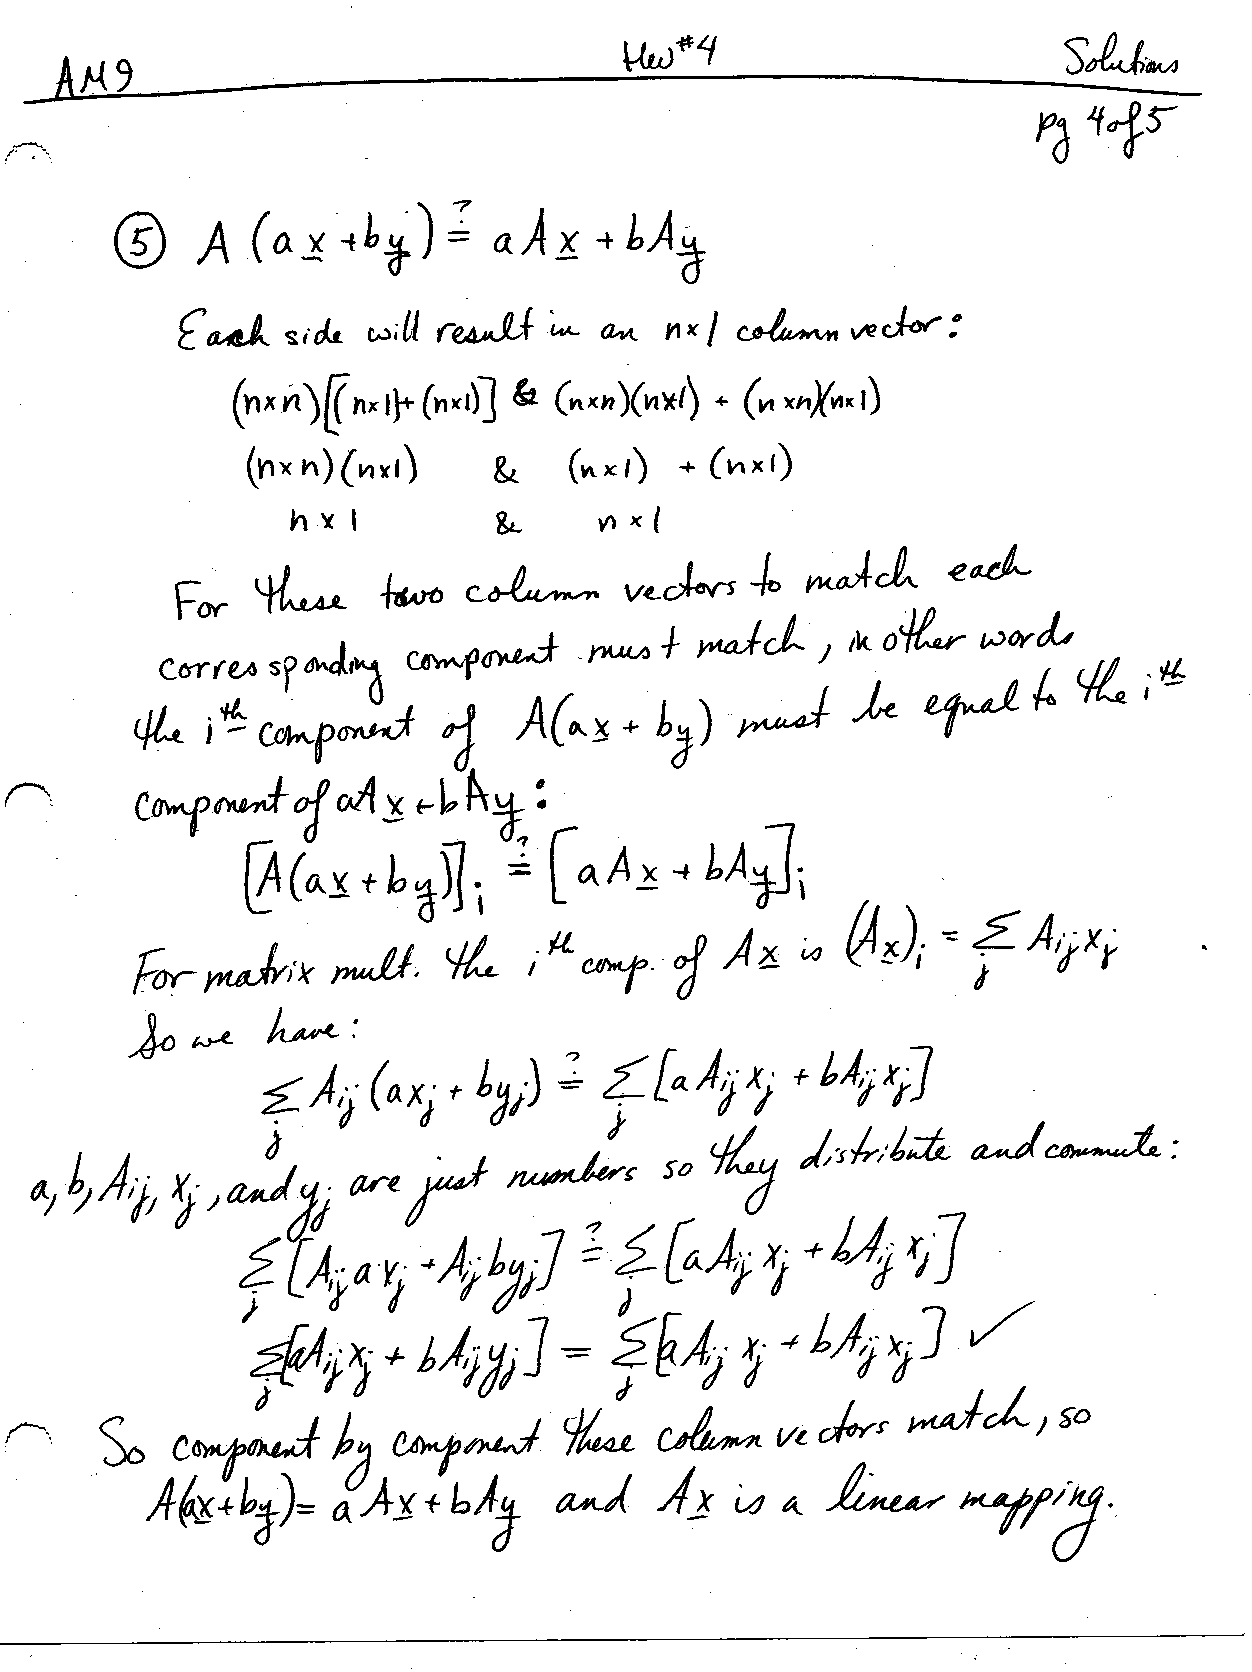 AM9 Hw #4 Solutions
pg 4 of 5
⑤ A (a x + b y) ≟ a A x + b A y
Each side will result in an n×1 column vector:
(n×n)[(n×1)+(n×1)] & (n×n)(n×1) + (n×n)(n×1)
(n×n)(n×1) & (n×1) + (n×1)
n×1 & n×1
For these two column vectors to match each
corresponding component must match, in other words
the i^th component of A(ax + by) must be equal to the i^th
component of aAx + bAy:
[A(ax + by)]_i ≟ [aAx + bAy]_i
For matrix mult. the i^th comp. of Ax is (Ax)_i = Σ_j A_ij x_j
So we have:
Σ_j A_ij (ax_j + by_j) ≟ Σ_j [a A_ij x_j + b A_ij x_j]
a, b, A_ij, x_j, and y_j are just numbers so they distribute and commute:
Σ_j [A_ij a x_j + A_ij b y_j] ≟ Σ_j [a A_ij x_j + b A_ij x_j]
Σ_j [a A_ij x_j + b A_ij y_j] = Σ_j [a A_ij x_j + b A_ij x_j] ✓
So component by component these column vectors match, so
A(ax + by) = a Ax + b Ay and Ax is a linear mapping.